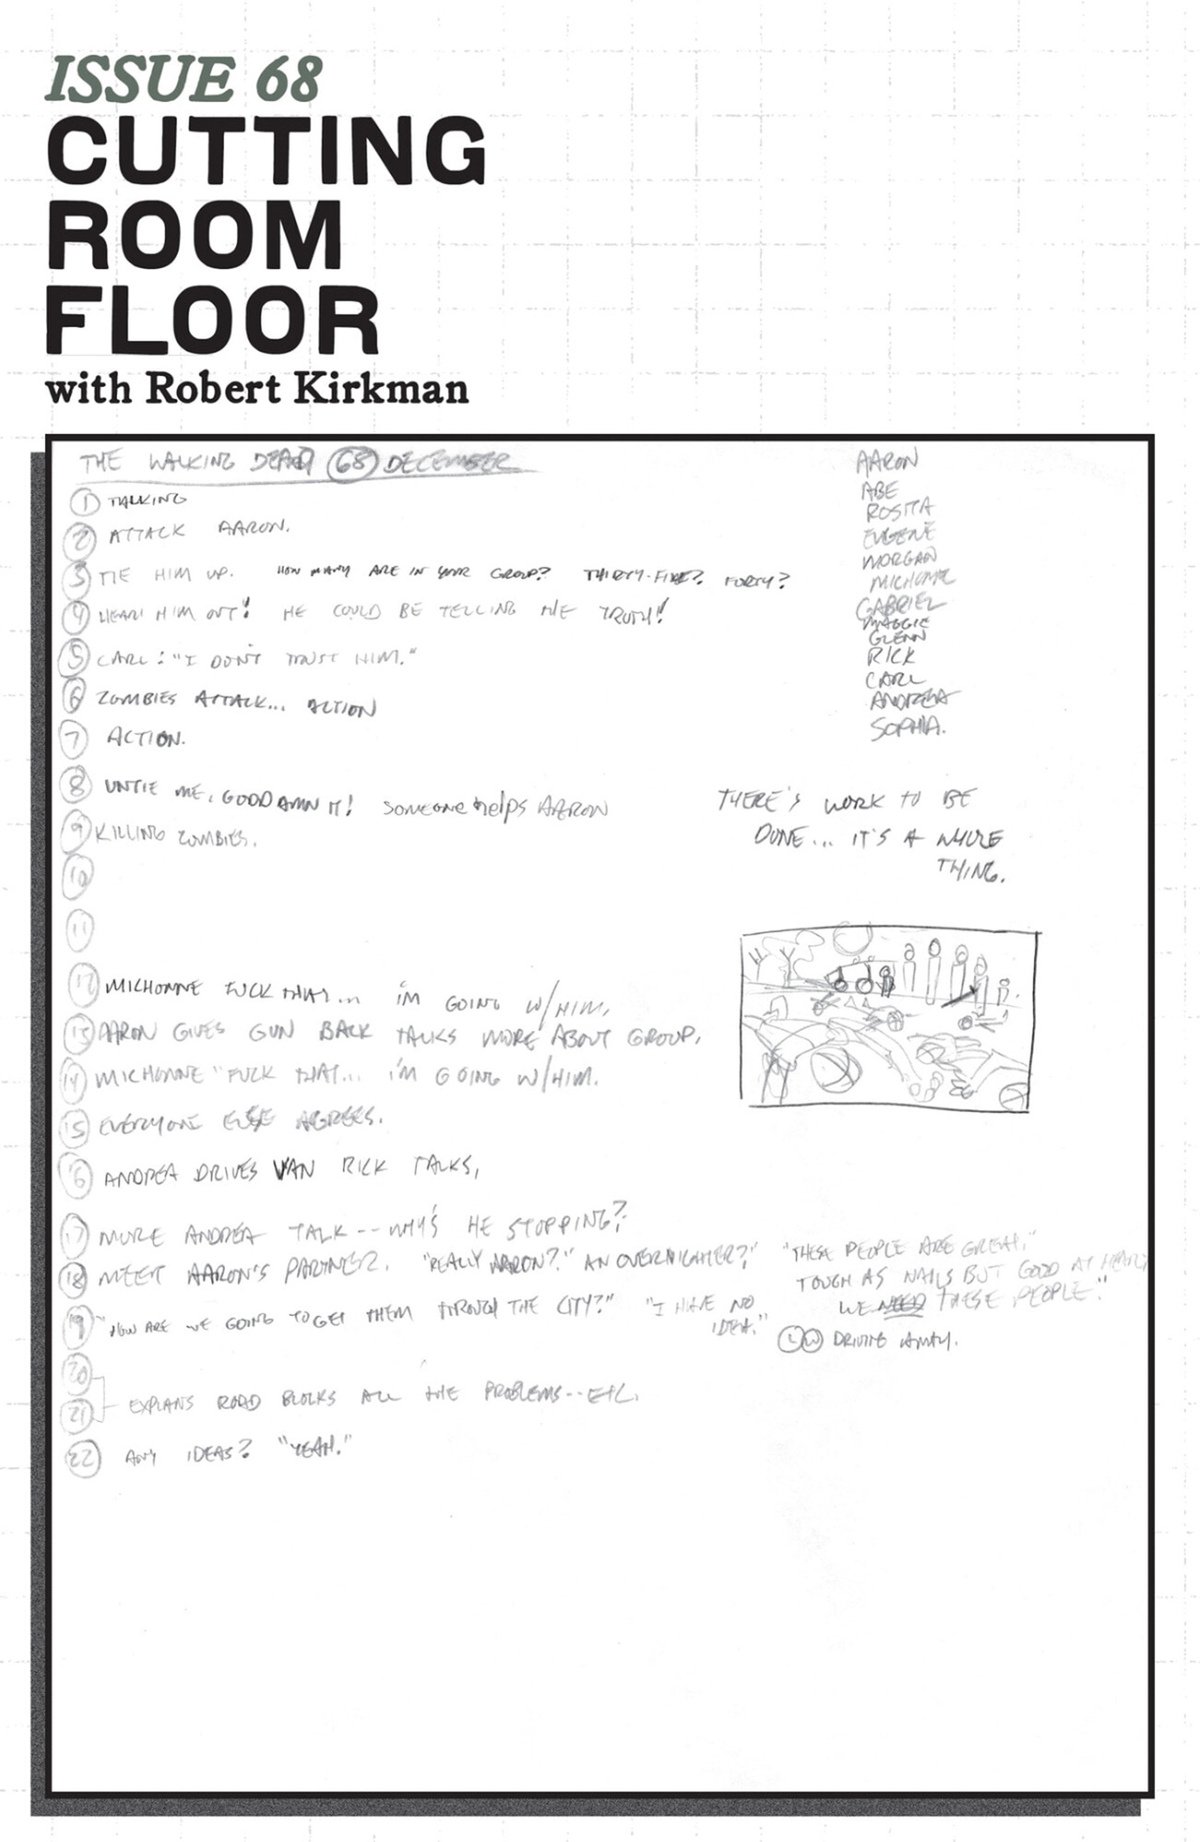 ISSUE 68
CUTTING
ROOM
FLOOR
with Robert Kirkman
THE WALKING DEAD 68 DECEMBER
1 TALKING
2 ATTACK AARON.
3 TIE HIM UP. HOW MANY ARE IN YOUR GROUP? THIRTY-FIVE? FORTY?
4 HEAR HIM OUT! HE COULD BE TELLING THE TRUTH!
5 CARL: "I DON'T TRUST HIM."
6 ZOMBIES ATTACK... ACTION
7 ACTION.
8 UNTIE ME, GODDAMN IT! SOMEONE helps AARON
9 KILLING ZOMBIES.
10
11
12 MICHONNE FUCK THAT... I'M GOING W/HIM.
13 AARON GIVES GUN BACK TALKS MORE ABOUT GROUP.
14 MICHONNE "FUCK THAT... I'M GOING W/HIM.
15 EVERYONE ELSE AGREES.
16 ANDREA DRIVES VAN RICK TALKS,
17 MORE ANDREA TALK -- WHY'S HE STOPPING?
18 MEET AARON'S PARTNER. "REALLY AARON?" AN OVERNIGHTER?"
19 "HOW ARE WE GOING TO GET THEM THROUGH THE CITY?" "I HAVE NO
IDEA."
20
21 EXPLAINS ROAD BLOCKS ALL THE PROBLEMS -- ETC.
22 ANY IDEAS? "YEAH."
AARON
ABE
ROSITA
EUGENE
MORGAN
MICHONNE
GABRIEL
MAGGIE
GLENN
RICK
CARL
ANDREA
SOPHIA.
THERE'S WORK TO BE
DONE... IT'S A WHOLE
THING.
"THESE PEOPLE ARE GREAT."
TOUGH AS NAILS BUT GOOD AT HEART
WE NEED THESE PEOPLE."
DRIVING AWAY.